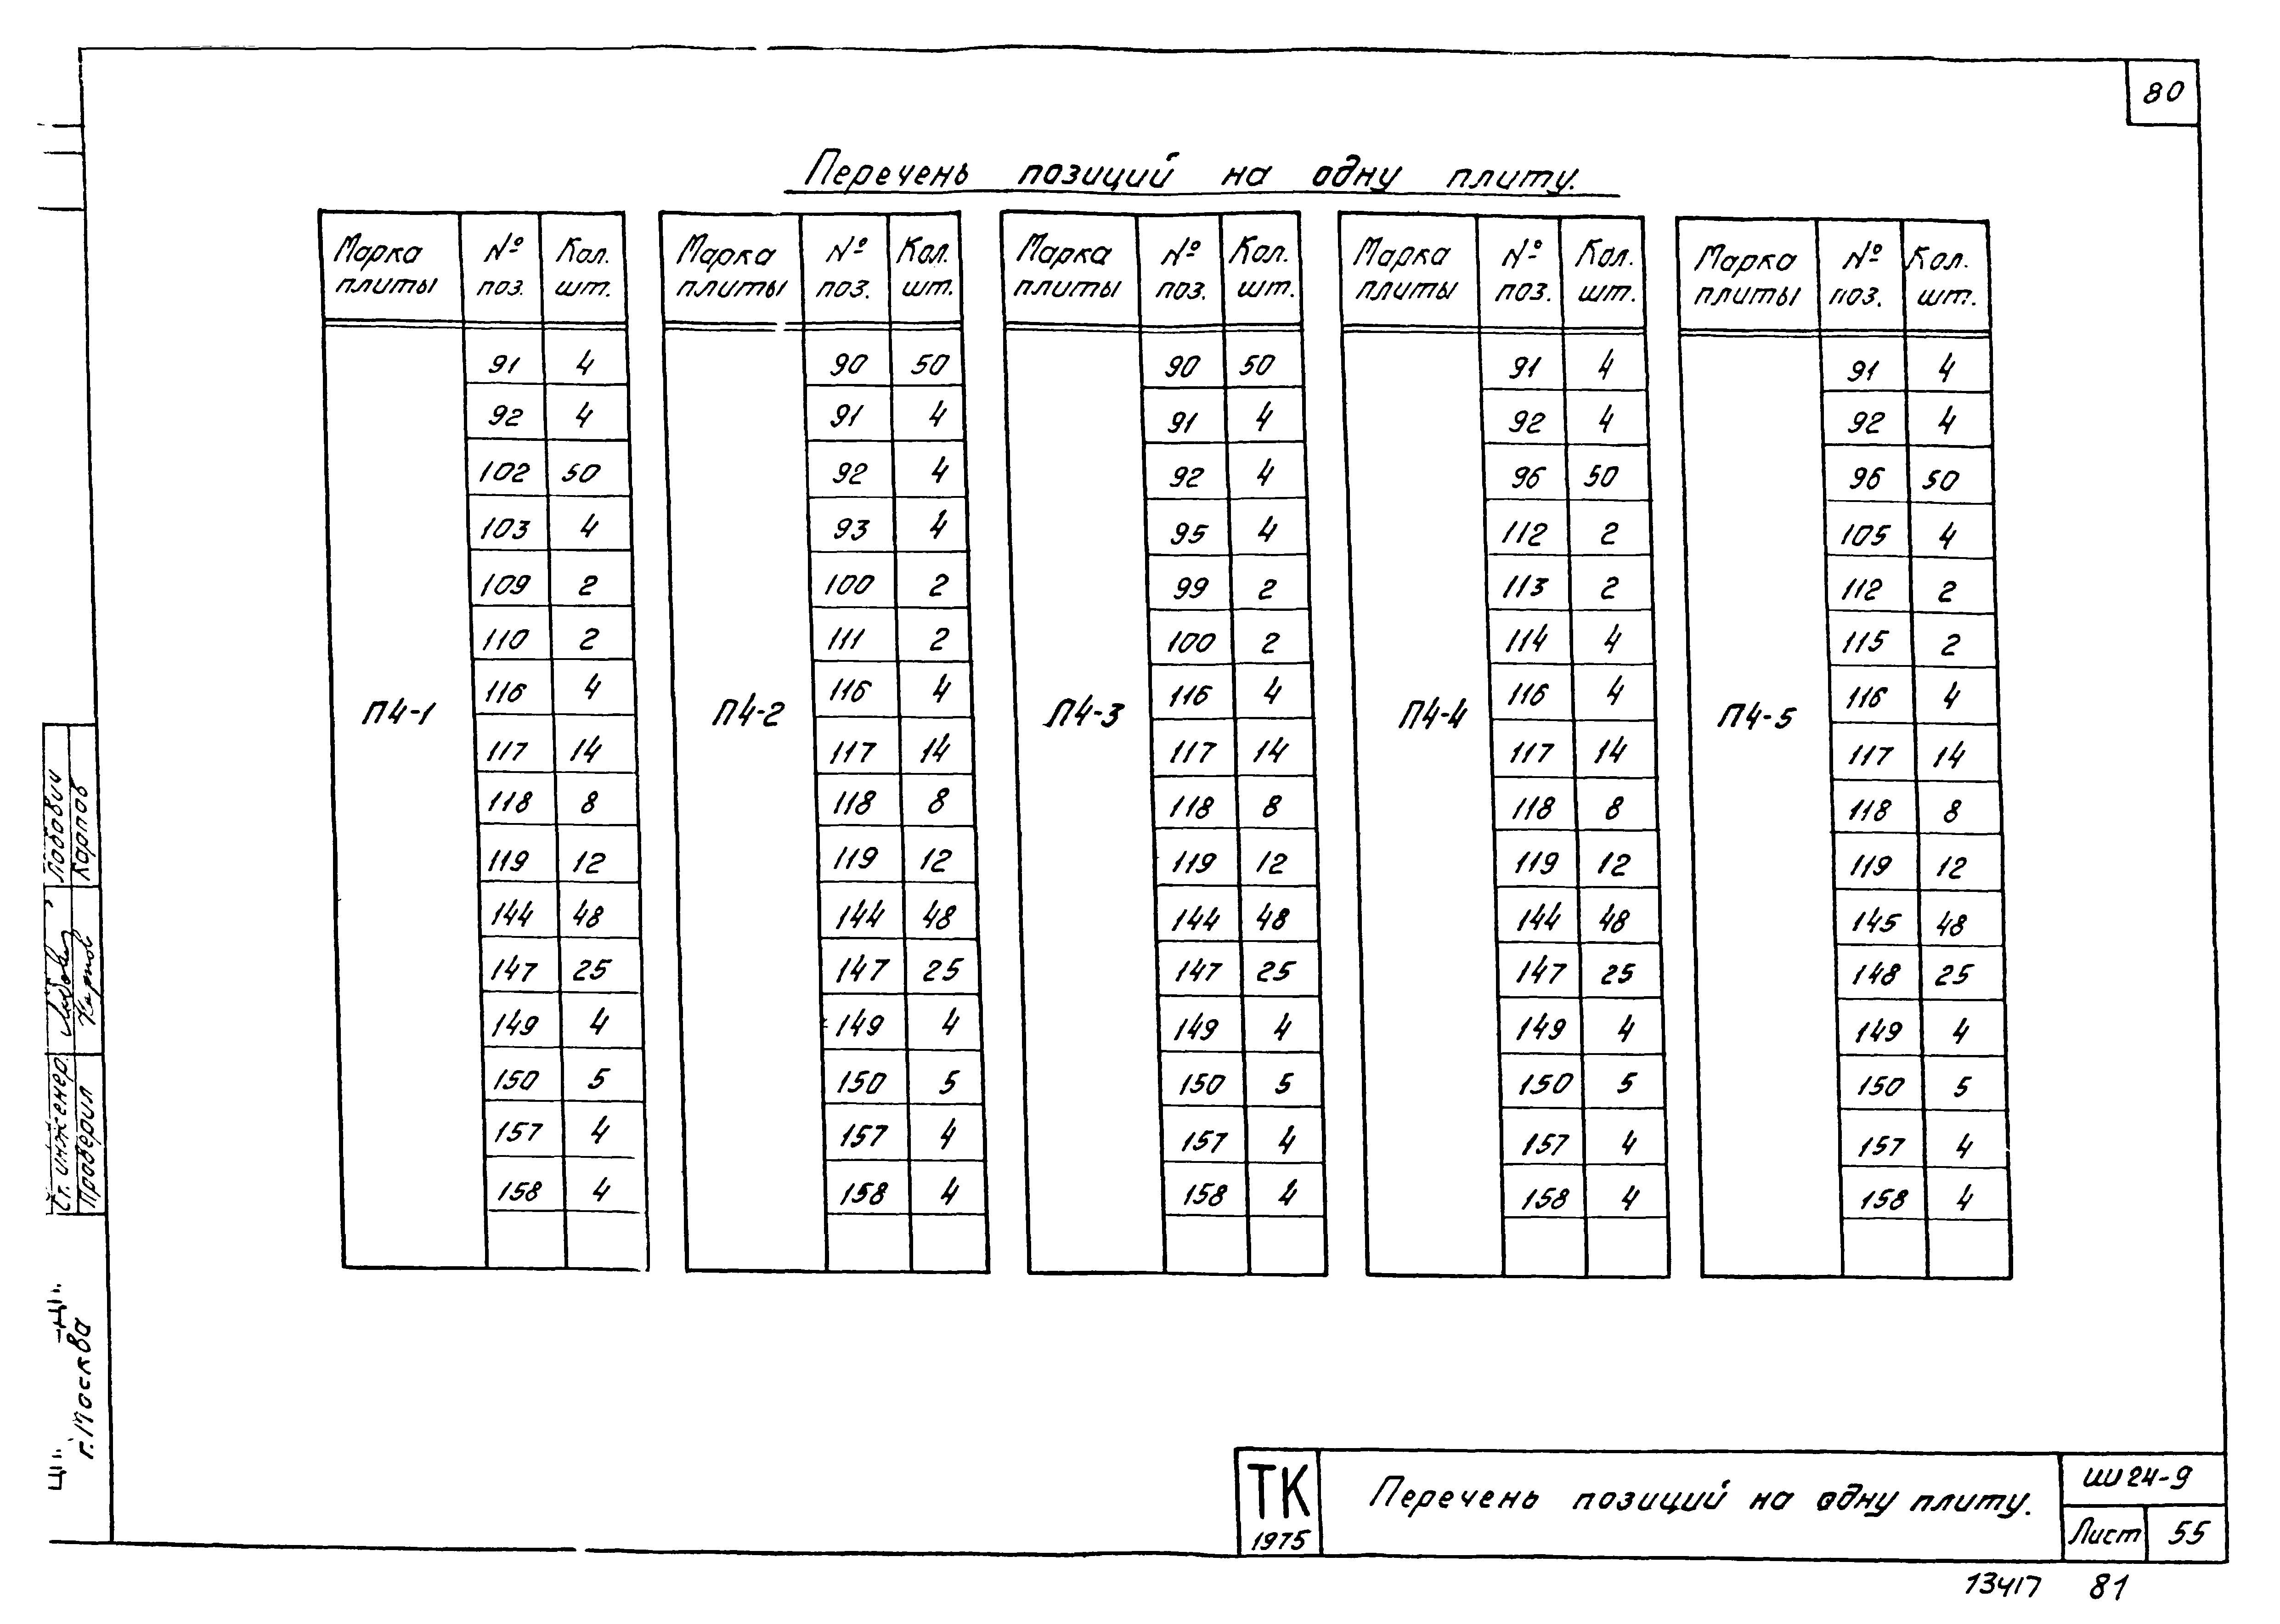 80
Перечень позиций на одну плиту.
Марка плиты № поз. Кол. шт.
П4-1
91 4
92 4
102 50
103 4
109 2
110 2
116 4
117 14
118 8
119 12
144 48
147 25
149 4
150 5
157 4
158 4
Марка плиты № поз. Кол. шт.
П4-2
90 50
91 4
92 4
93 4
100 2
111 2
116 4
117 14
118 8
119 12
144 48
147 25
149 4
150 5
157 4
158 4
Марка плиты № поз. Кол. шт.
П4-3
90 50
91 4
92 4
95 4
99 2
100 2
116 4
117 14
118 8
119 12
144 48
147 25
149 4
150 5
157 4
158 4
Марка плиты № поз. Кол. шт.
П4-4
91 4
92 4
96 50
112 2
113 2
114 4
116 4
117 14
118 8
119 12
144 48
147 25
149 4
150 5
157 4
158 4
Марка плиты № поз. Кол. шт.
П4-5
91 4
92 4
96 50
105 4
112 2
115 2
116 4
117 14
118 8
119 12
145 48
148 25
149 4
150 5
157 4
158 4
Ст. инженер.
Проверил Карпов Карпов
г. Москва
ТК
1975
Перечень позиций на одну плиту.
ИИ24-9
Лист 55
13417 81